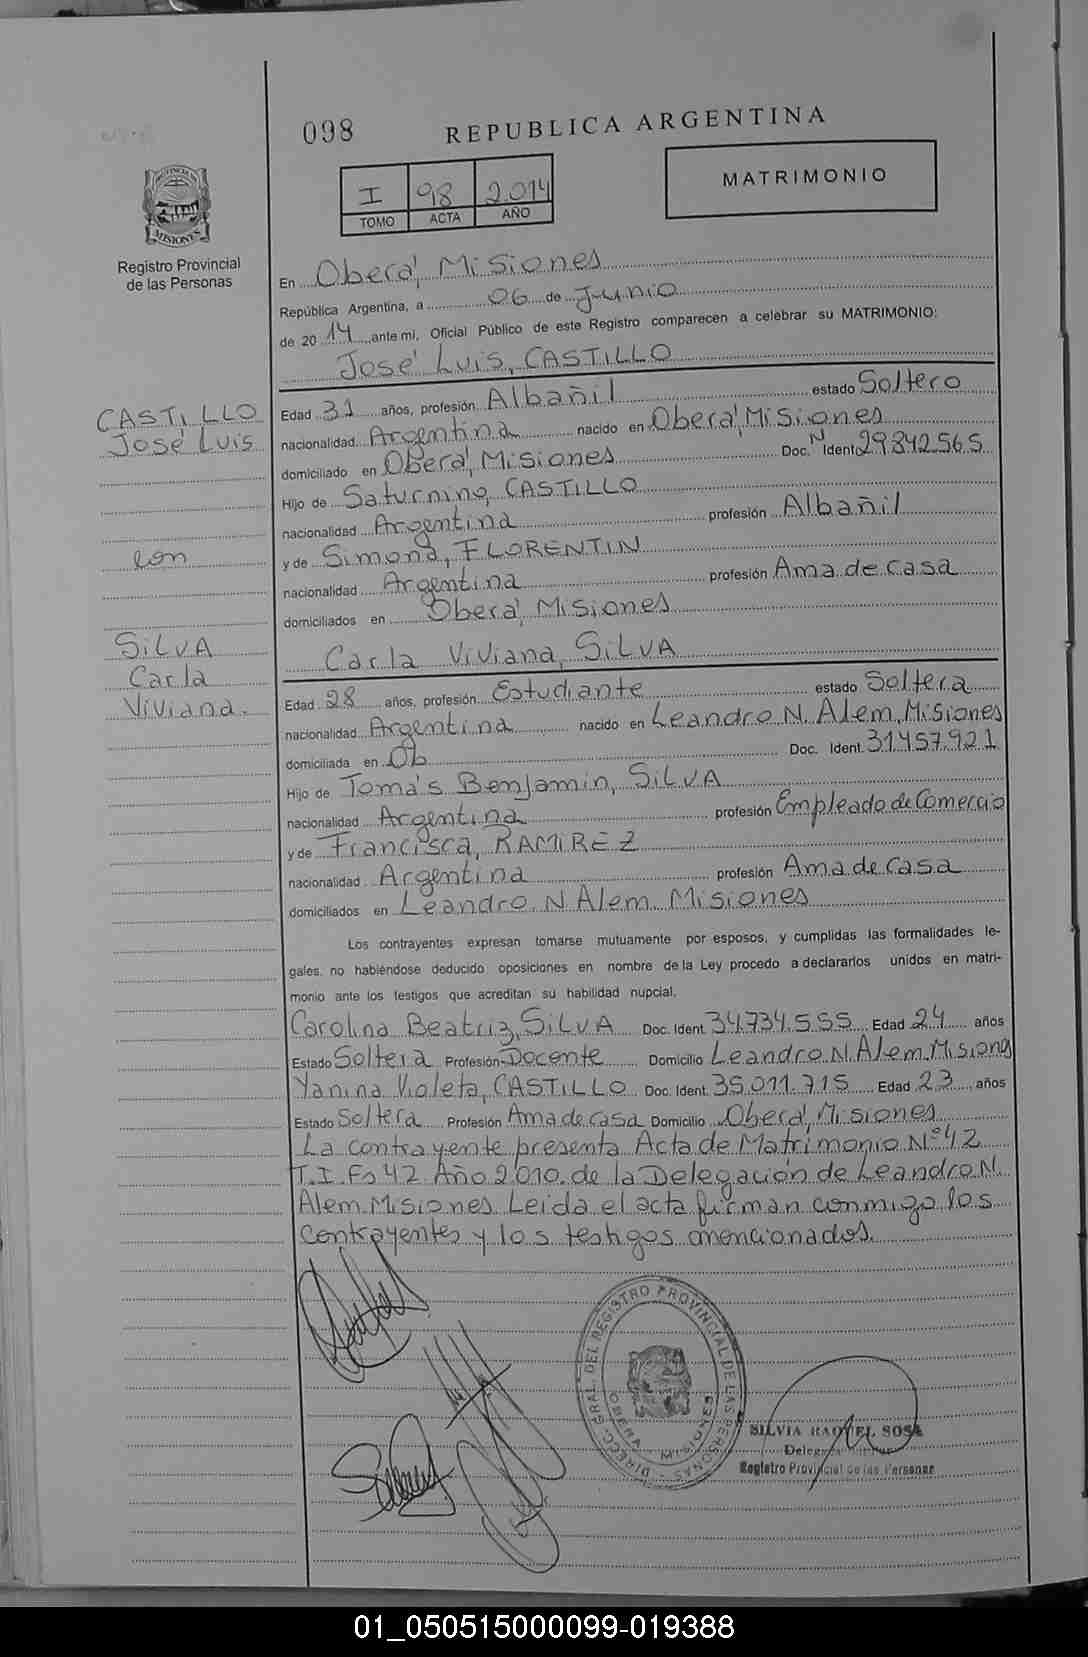 098
REPUBLICA ARGENTINA
I 98 2.014
TOMO ACTA AÑO
MATRIMONIO
PROVINCIA DE
MISIONES
Registro Provincial
de las Personas
En Oberá, Misiones
República Argentina, a 06 de Junio
de 20 14 ante mi, Oficial Público de este Registro comparecen a celebrar su MATRIMONIO:
José Luis, CASTILLO
CASTILLO
José Luis
con
SILVA
Carla
Viviana.
Edad 31 años, profesión Albañil estado Soltero
nacionalidad Argentina nacido en Oberá, Misiones
domiciliado en Oberá, Misiones Doc. N Ident 29.842.565
Hijo de Saturnino, CASTILLO
nacionalidad Argentina profesión Albañil
y de Simona, FLORENTIN
nacionalidad Argentina profesión Ama de casa
domiciliados en Oberá, Misiones
Carla Viviana, SILVA
Edad 28 años, profesión Estudiante estado Soltera
nacionalidad Argentina nacido en Leandro N. Alem, Misiones
domiciliada en Ob Doc. Ident. 31.457.921
Hijo de Tomás Benjamin, SILVA
nacionalidad Argentina profesión Empleado de Comercio
y de Francisca, RAMIREZ
nacionalidad Argentina profesión Ama de casa
domiciliados en Leandro N Alem Misiones
Los contrayentes expresan tomarse mutuamente por esposos, y cumplidas las formalidades le-
gales, no habiéndose deducido oposiciones en nombre de la Ley procedo a declararlos unidos en matri-
monio ante los testigos que acreditan su habilidad nupcial.
Carolina Beatriz, SILVA Doc. Ident. 34.734.555 Edad 24 años
Estado Soltera Profesión Docente Domicilio Leandro N. Alem Misiones
Yanina Violeta, CASTILLO Doc. Ident. 35.011.715 Edad 23 años
Estado Soltera Profesión Ama de casa Domicilio Oberá, Misiones
La contrayente presenta Acta de Matrimonio Nº 42
T.I. Fº 42 Año 2.010. de la Delegación de Leandro N.
Alem Misiones Leida el acta firman conmigo los
contrayentes y los testigos mencionados.
DIRECC. GRAL. DEL REGISTRO PROVINCIAL DE LAS PERSONAS
OBERA - MISIONES
SILVIA RAQUEL SOSA
Registro Provincial de las Personas
01_050515000099-019388